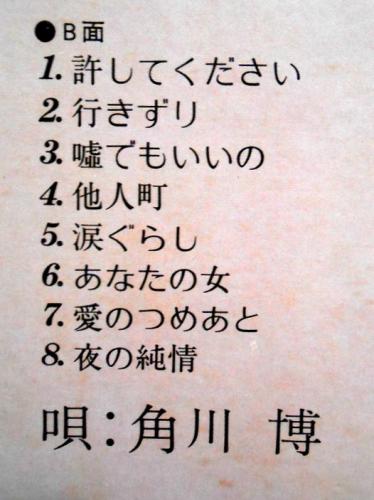 ●B面
1. 許してください
2. 行きずり
3. 嘘でもいいの
4. 他人町
5. 涙ぐらし
6. あなたの女
7. 愛のつめあと
8. 夜の純情
唄：角川 博